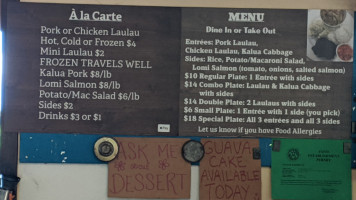 À la Carte
Pork or Chicken Laulau
Hot, Cold or Frozen $4
Mini Laulau $2
FROZEN TRAVELS WELL
Kalua Pork $8/lb
Lomi Salmon $8/lb
Potato/Mac Salad $6/lb
Sides $2
Drinks $3 or $1
MENU
Dine In or Take Out
Entrées: Pork Laulau,
Chicken Laulau, Kalua Cabbage
Sides: Rice, Potato/Macaroni Salad,
Lomi Salmon (tomato, onions, salted salmon)
$10 Regular Plate: 1 Entrée with sides
$14 Combo Plate: Laulau & Kalua Cabbage
with sides
$14 Double Plate: 2 Laulaus with sides
$6 Small Plate: 1 Entrée with 1 side (you pick)
$18 Special Plate: All 3 entrées and all 3 sides
Let us know if you have Food Allergies
ASK ME
and
DESSERT
GUAVA
ARE
AVAILABLE
TODAY